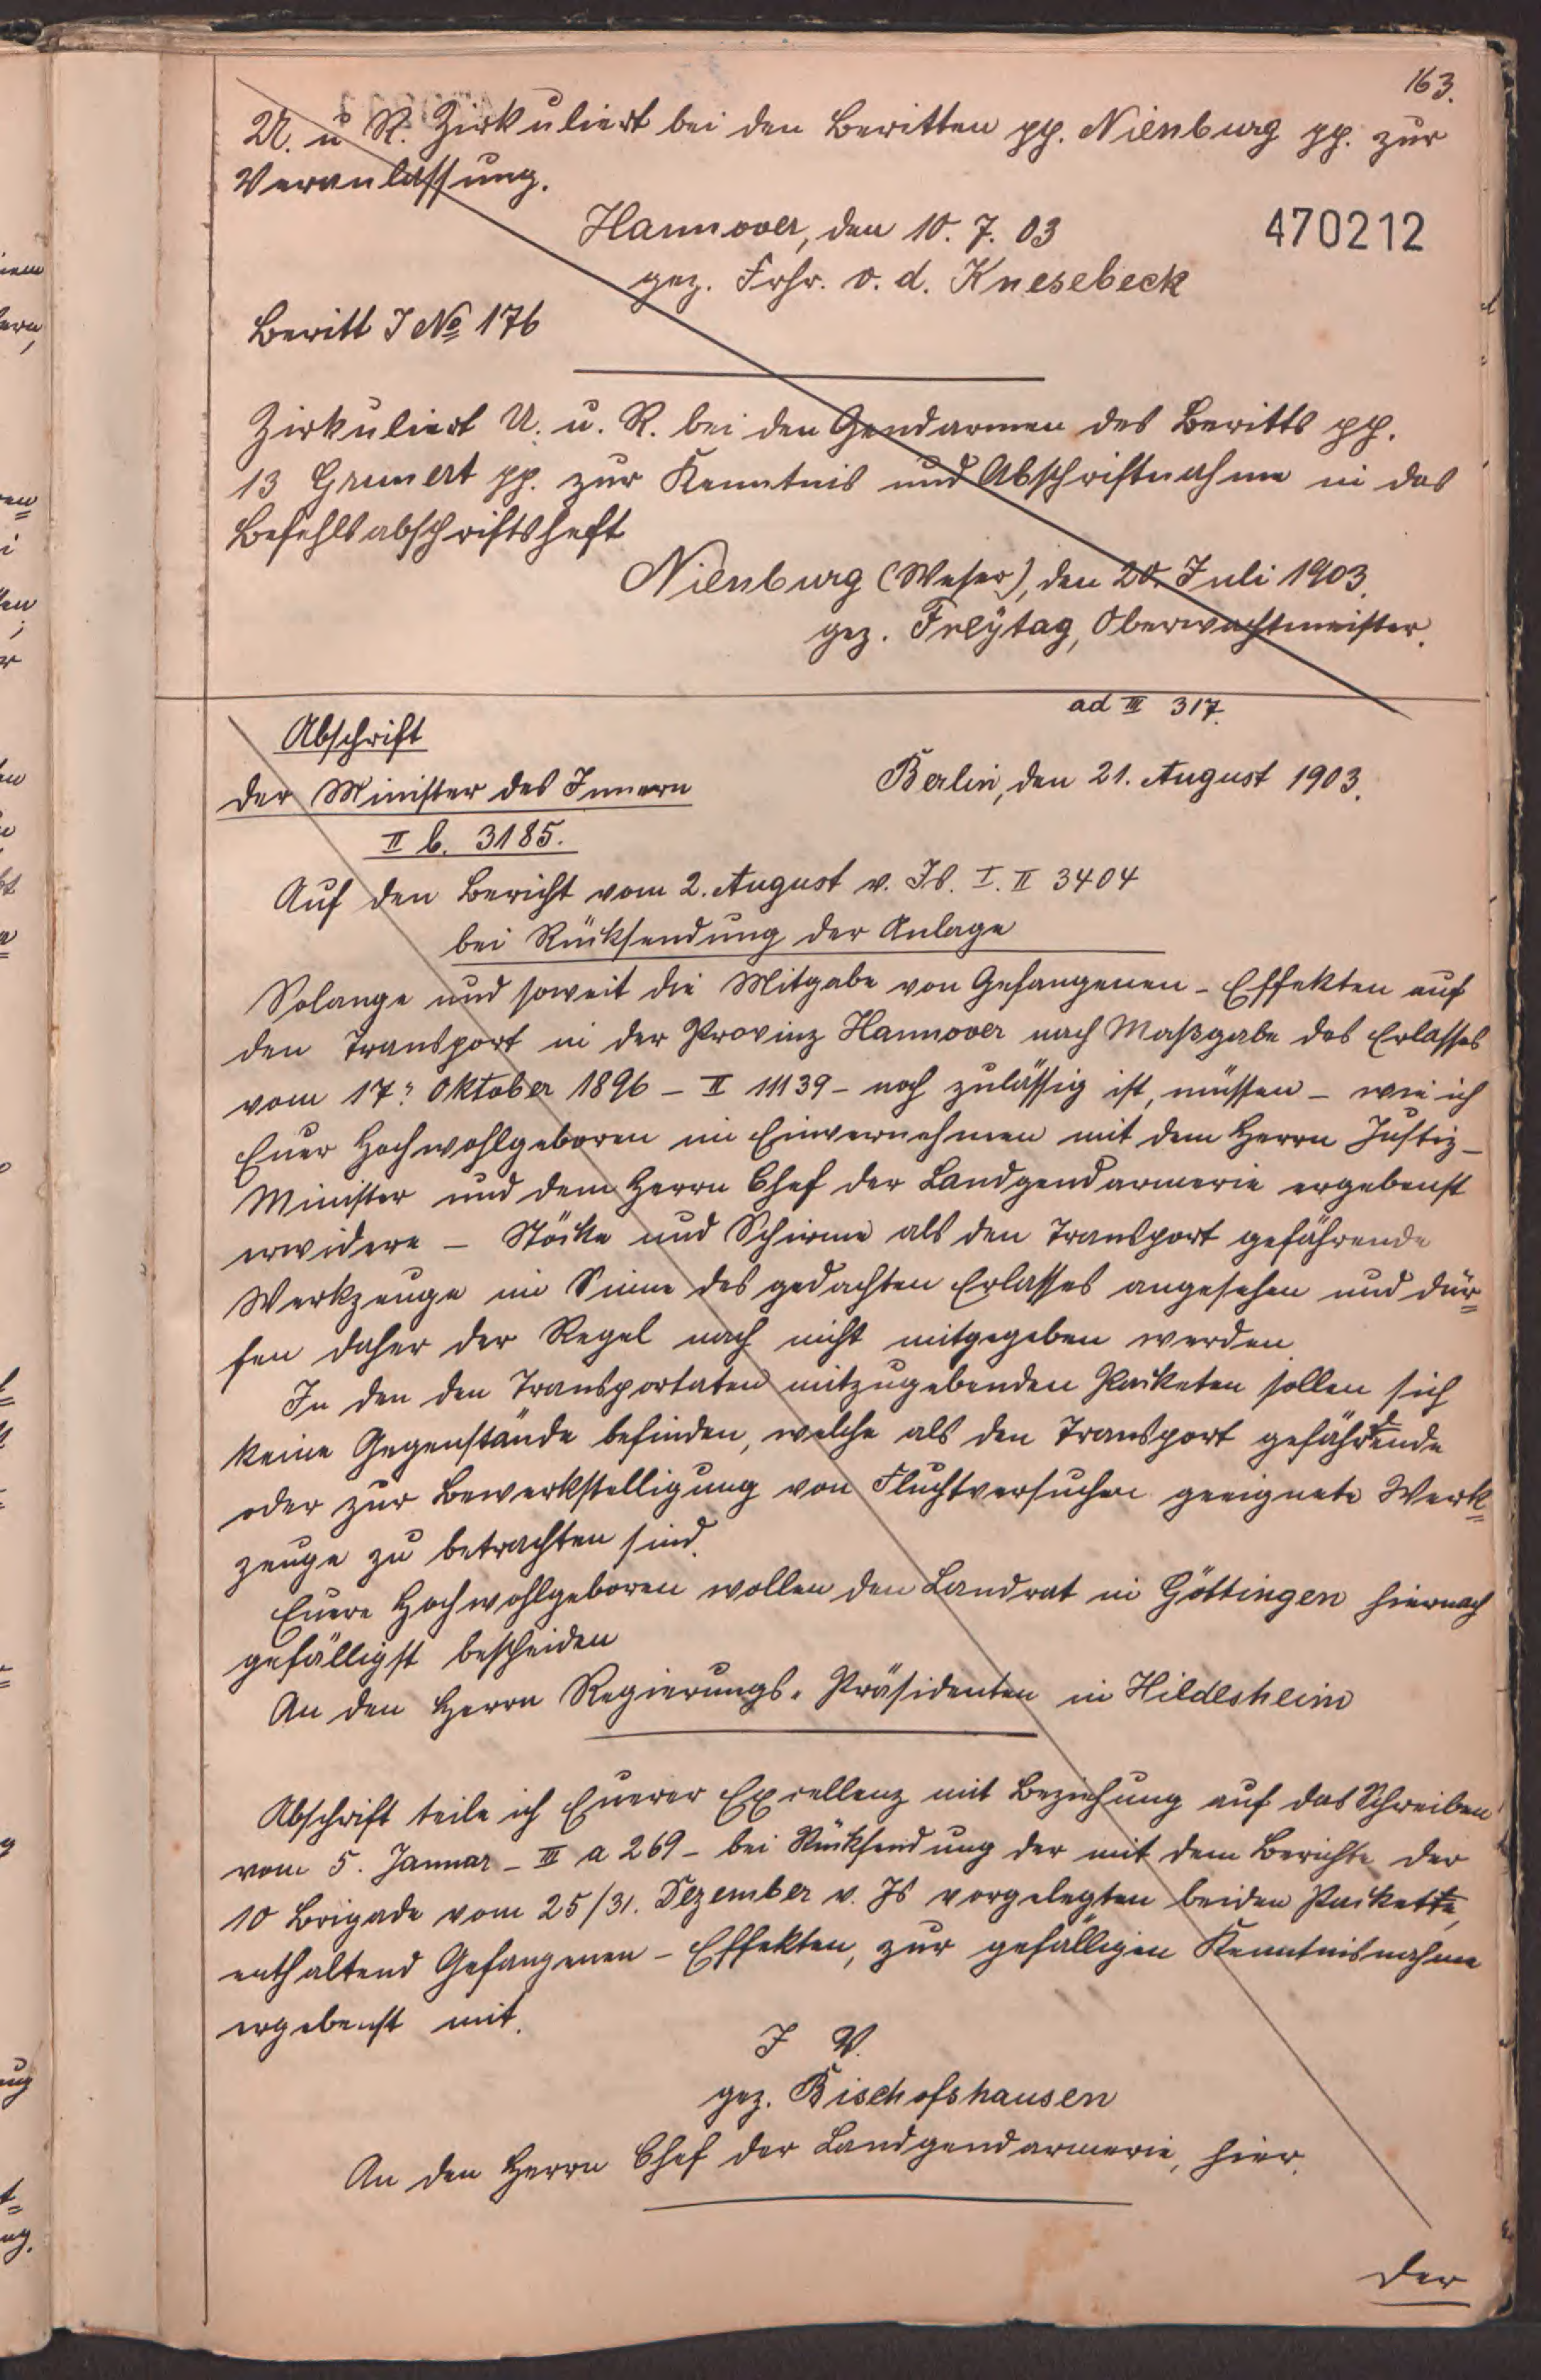 163.
U. u. R. Zirkuliert bei den Beritten pp. Nienburg pp. zur
Veranlassung.
Hannover, den 10. 7. 03
470212
gez. Frhr. v. d. Knesebeck
Beritt J No 176
Zirkuliert U. u. R. bei den Gendarmen des Beritts pp.
13 Grunert pp. zur Kenntnis und Abschriftnahme in das
Befehlsabschriftsheft
Nienburg (Weser), den 20. Juli 1903.
gez. Freytag, Oberwachtmeister.
ad III 317.
Abschrift
Der Minister des Innern
Berlin, den 21. August 1903.
II b. 3185.
Auf den Bericht vom 2. August v. Js. I. II 3404
bei Rücksendung der Anlage
Solange und soweit die Mitgabe von Gefangenen-Effekten auf
den Transport in der Provinz Hannover nach Maßgabe des Erlasses
vom 17. Oktober 1896 – II 11139 – noch zulässig ist, müssen – wie ich
Euer Hochwohlgeboren im Einvernehmen mit dem Herrn Justiz-
Minister und dem Herrn Chef der Landgendarmerie ergebenst
erwidere – Stöcke und Schirme als den Transport gefährende
Werkzeuge im Sinne des gedachten Erlasses angesehen und dür=
fen daher der Regel nach nicht mitgegeben werden.
In den den Transportaten mitzugebenden Packeten sollen sich
keine Gegenstände befinden, welche als den Transport gefährdende
oder zur Bewerkstelligung von Fluchtversuchen geeignete Werk=
zeuge zu betrachten sind.
Euere Hochwohlgeboren wollen den Landrat in Göttingen hiernach
gefälligst bescheiden
An den Herrn Regierungs-Präsidenten in Hildesheim
Abschrift teile ich Euerer Excellenz mit Beziehung auf das Schreiben
vom 5. Januar – III a 269 – bei Rücksendung der mit dem Berichte der
10 Brigade vom 25/31. Dezember v. Js vorgelegten beiden Packette,
enthaltend Gefangenen-Effekten, zur gefälligen Kenntnisnahme
ergebenst mit.
J V.
gez. Bischofshausen
An den Herrn Chef der Landgendarmerie, hier.
Der